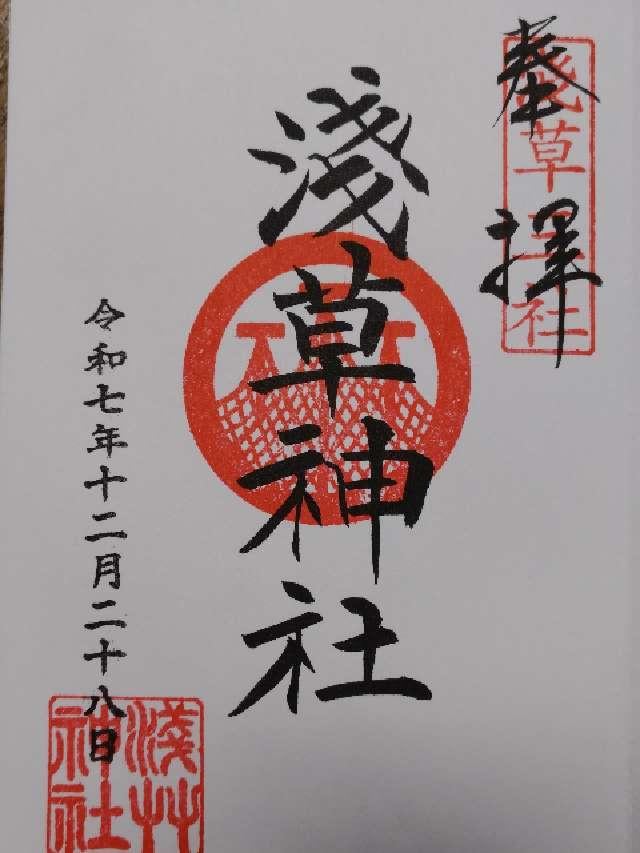 奉拝
淺草三社
淺草神社
令和七年十二月二十八日
淺艸神社